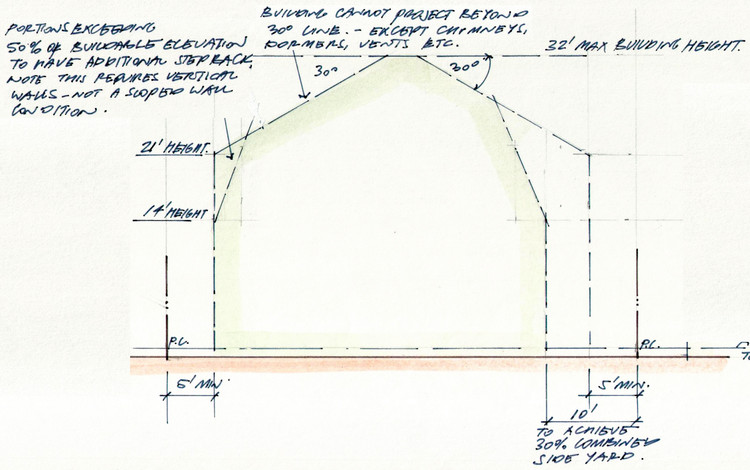 PORTIONS EXCEEDING
50% OF BUILDABLE ELEVATION
TO HAVE ADDITIONAL STEP BACK.
NOTE THIS REQUIRES VERTICAL
WALLS - NOT A SLOPED WALL
CONDITION.
BUILDING CANNOT PROJECT BEYOND
30° LINE. - EXCEPT CHIMNEYS,
DORMERS, VENTS ETC.
32' MAX BUILDING HEIGHT.
30°
30°
21' HEIGHT.
14' HEIGHT
P.L.
P.L.
5' MIN.
10'
TO ACHIEVE
30% COMBINED
SIDE YARD.